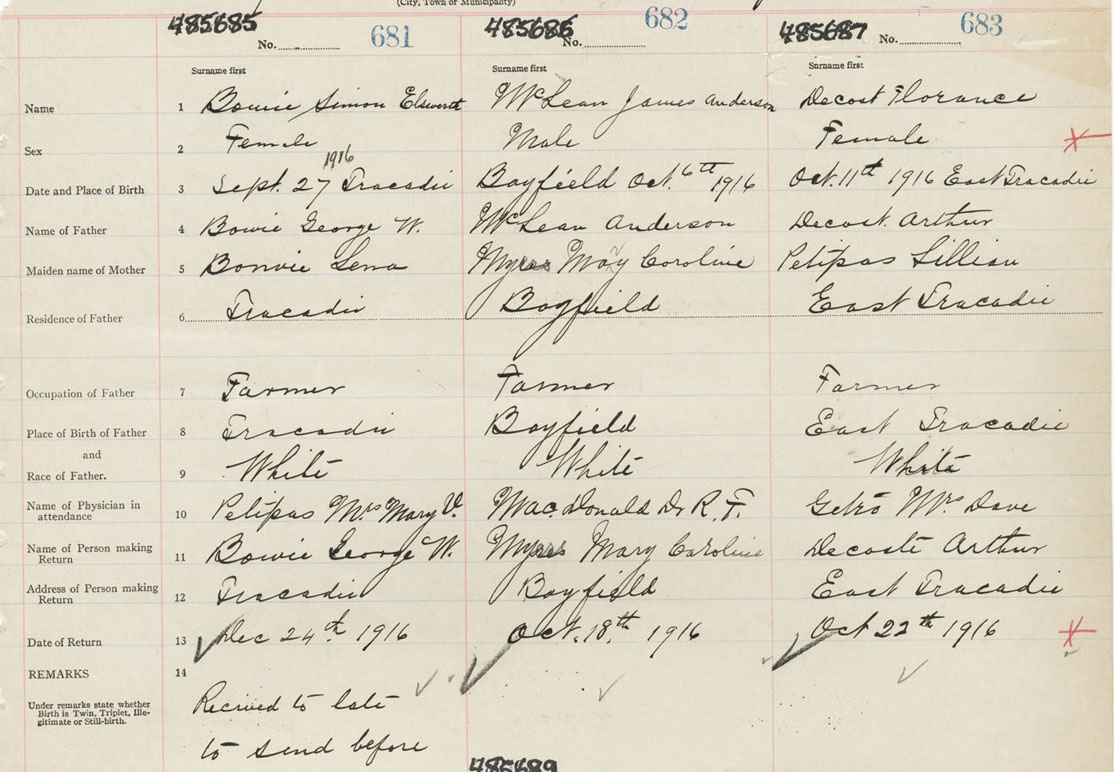 (City, Town or Municipality)
485685 485686 485687
No. 681 No. 682 No. 683
Surname first Surname first Surname first
Name 1 Bowie Simon Elsworth McLean James Anderson Decost Florance
Sex 2 Female Male Female
1916
Date and Place of Birth 3 Sept. 27 Tracadie Bayfield Oct. 6th 1916 Oct. 11th 1916 East Tracadie
Name of Father 4 Bowie George W. McLean Anderson Decost Arthur
Maiden name of Mother 5 Bonvie Lena Myers May Caroline Petipas Lillian
Residence of Father 6 Tracadie Bayfield East Tracadie
Occupation of Father 7 Farmer Farmer Farmer
Place of Birth of Father 8 Tracadie Bayfield East Tracadie
and
Race of Father. 9 White White White
Name of Physician in
attendance 10 Petipas Mrs Mary V. MacDonald Dr R. F. Getro Mrs Dave
Name of Person making
Return 11 Bowie George W. Myers Mary Caroline Decoste Arthur
Address of Person making
Return 12 Tracadie Bayfield East Tracadie
Date of Return 13 Dec 24th 1916 Oct. 18th 1916 Oct 22th 1916
REMARKS 14
Under remarks state whether
Birth is Twin, Triplet, Ille-
gitimate or Still-birth.
Recived to late
to send before
485689